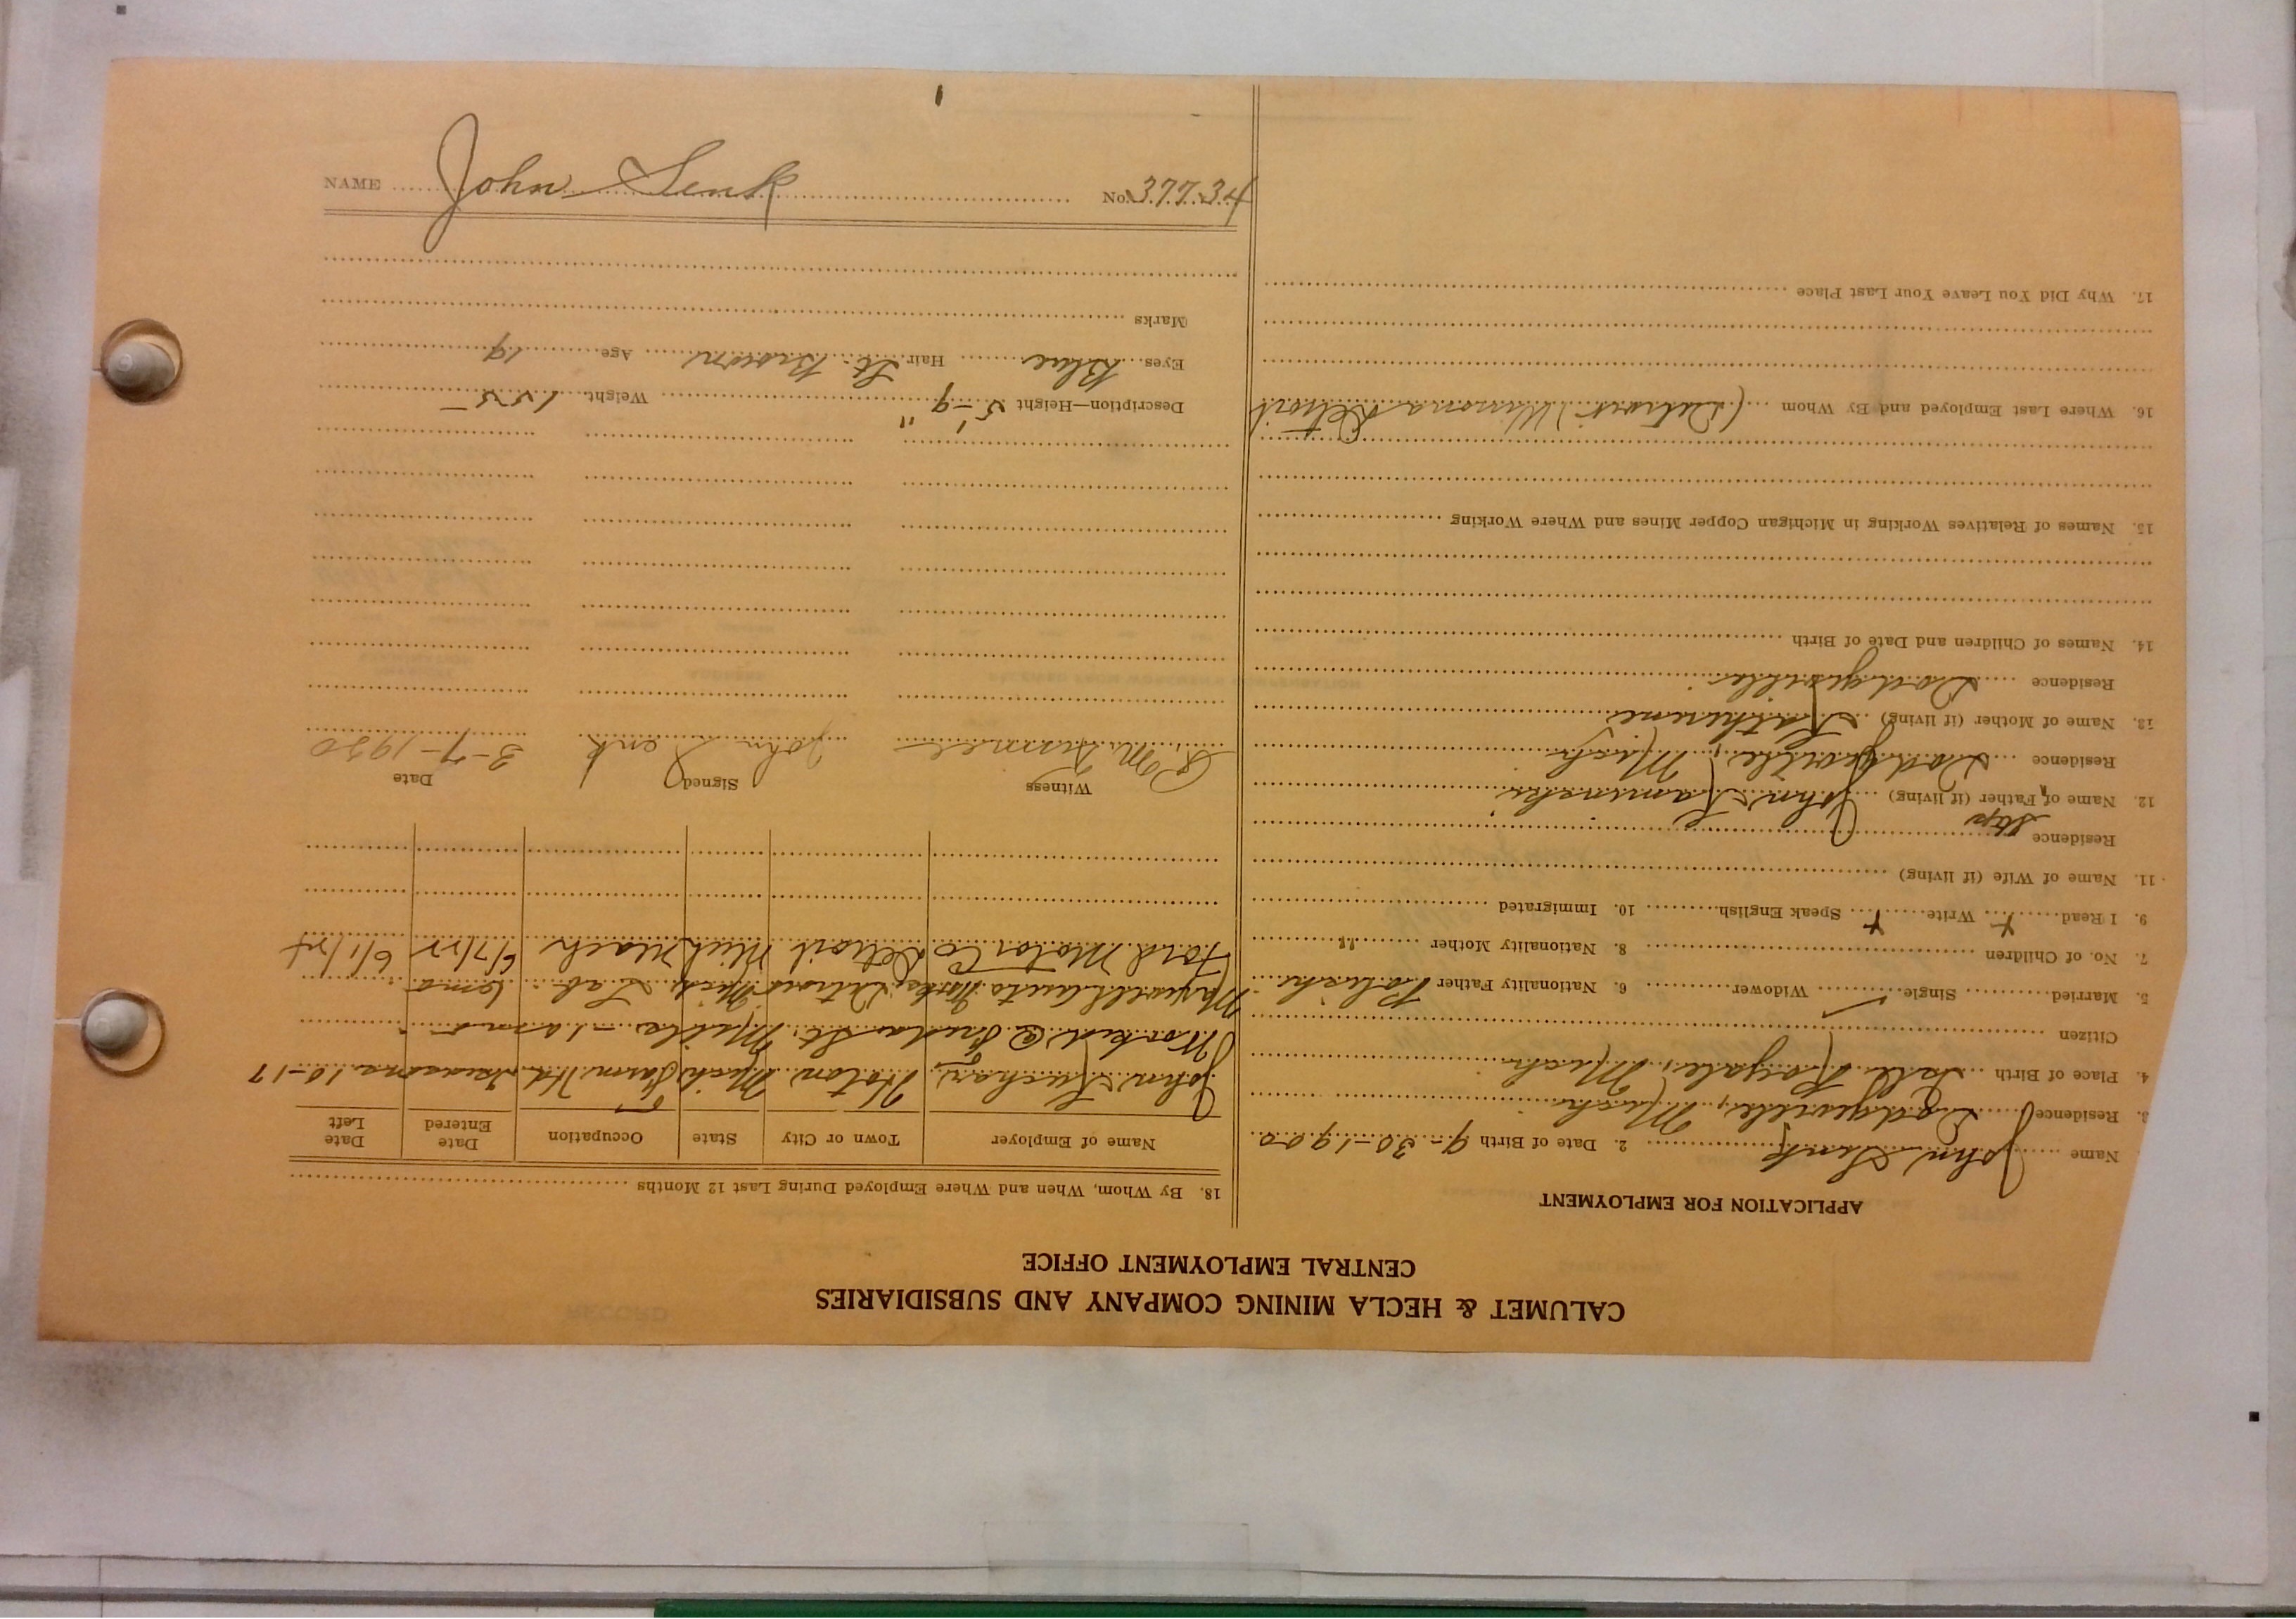 CALUMET & HECLA MINING COMPANY AND SUBSIDIARIES
CENTRAL EMPLOYMENT OFFICE
APPLICATION FOR EMPLOYMENT
Name John Senk 2. Date of Birth 9-30-1900
3. Residence Dodgeville, Mich
4. Place of Birth Isle Royale, Mich
Citizen
5. Married Single ✓ Widower 6. Nationality Father Polish
7. No. of Children 8. Nationality Mother "
9. I Read + Write + Speak English 10. Immigrated
11. Name of Wife (if living)
Residence
12. Name of Step Father (if living) John Kaminski
Residence Dodgeville, Mich
13. Name of Mother (if living) Katherine
Residence Dodgeville
14. Names of Children and Date of Birth
15. Names of Relatives Working in Michigan Copper Mines and Where Working
16. Where Last Employed and By Whom (Detroit) Winona Detroit
17. Why Did You Leave Your Last Place
18. By Whom, When and Where Employed During Last 12 Months
Name of Employer Town or City State Occupation Date Entered Date Left
John Mich Farm 10-17
Worked @
Maxwell Auto Works, Detroit Mich, Lab.
Ford Motor Co Detroit Mich Mach
Witness Signed Date
John Senk 3-7-1920
Description—Height 5'-9" Weight 155
Eyes Blue Hair Lt. Brown Age 19
Marks
NAME John Senk No. 37734